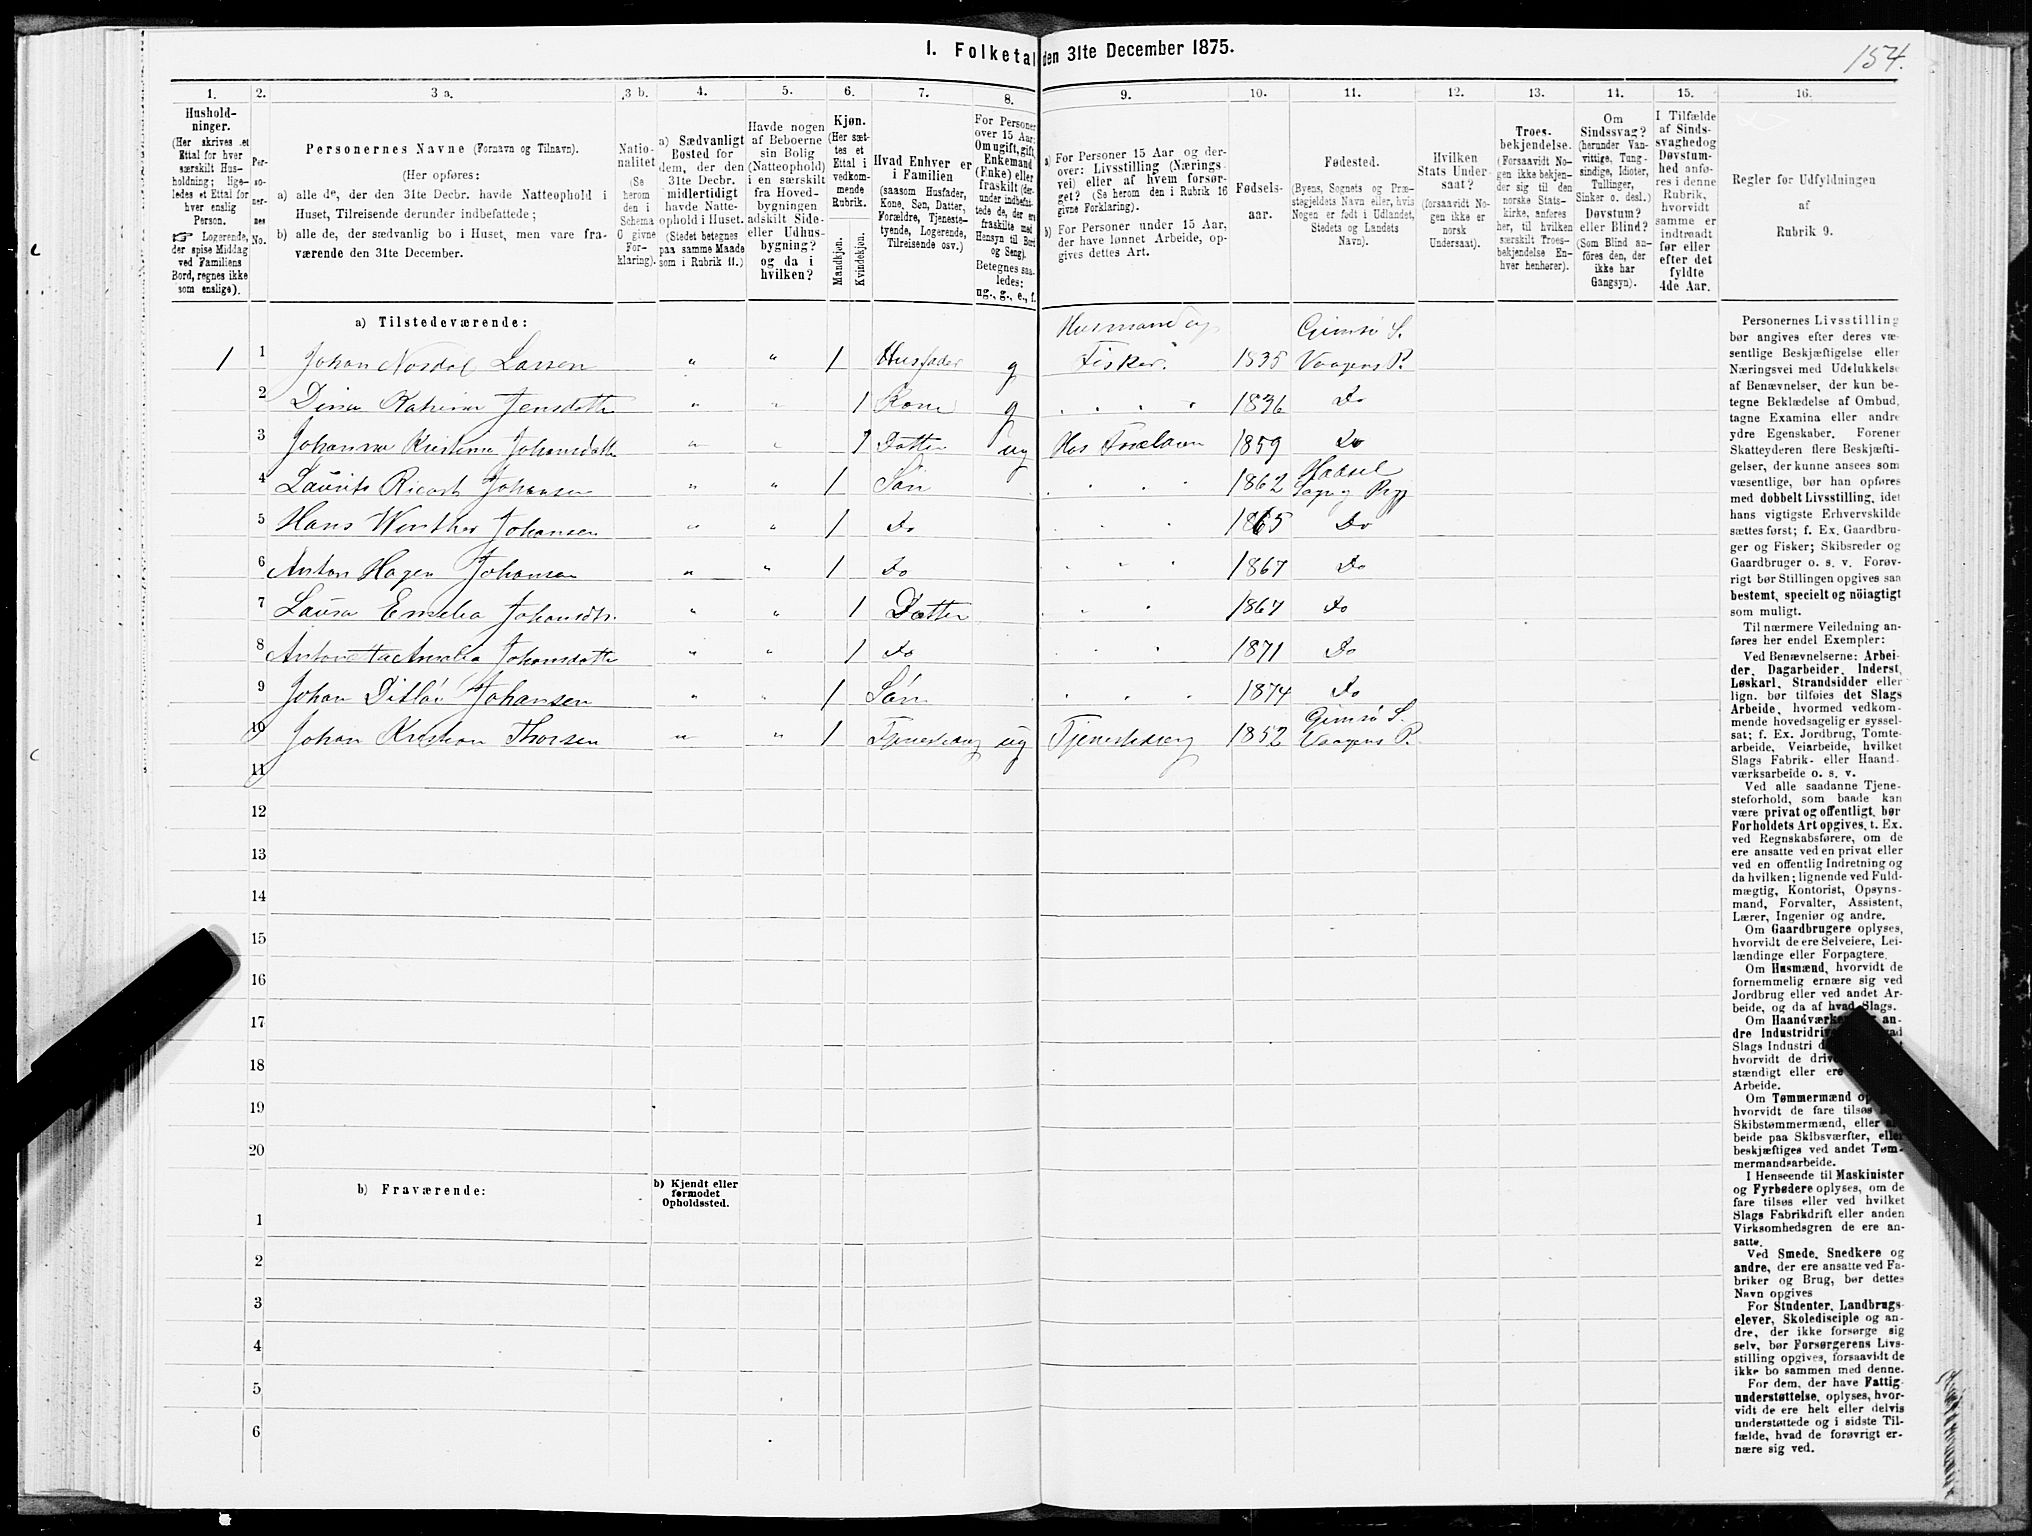 I. Folketal den 31te December 1875.
154.
1.
2.
3 a.
3 b.
4.
5.
6.
7.
8.
9.
10.
11.
12.
13.
14.
15.
16.
Hushold-
ninger.
(Her skrives et
Ettal for hver
særskilt Hus-
holdning; lige-
ledes et Ettal for
hver enslig
Person.
☞ Logerende,
der spise Middag
ved Familiens
Bord, regnes ikke
som enslige).
Per-
so-
ner-
nes
No.
Personernes Navne (Fornavn og Tilnavn).
(Her opføres:
a) alle de, der den 31te Decbr. havde Natteophold i
Huset, Tilreisende derunder indbefattede;
b) alle de, der sædvanlig bo i Huset, men vare fra-
værende den 31te December.
Natio-
nalitet
(Se
herom
den i
Schema
C givne
For-
klaring).
a) Sædvanligt
Bosted for
dem, der den
31te Decbr.
midlertidigt
havde Natte-
ophold i Huset.
(Stedet betegnes
paa samme Maade
som i Rubrik 11.)
Havde nogen
af Beboerne
sin Bolig
(Natteophold)
i en særskilt
fra Hoved-
bygningen
adskilt Side-
eller Udhus-
bygning?
og da i
hvilken?
Kjøn.
(Her sæt-
tes et
Ettal i
vedkom-
mende
Rubrik.
Mandkjøn.
Kvindekjøn.
Hvad Enhver er
i Familien
(saasom Husfader,
Kone, Søn, Datter,
Forældre, Tjeneste-
tyende, Logerende,
Tilreisende osv.)
For Personer
over 15 Aar:
Om ugift, gift,
Enkemand
(Enke) eller
fraskilt (der-
under indbefat-
tede de, der ere
fraskilte med
Hensyn til Bord
og Seng).
Betegnes saa-
ledes:
ug., g., e., f.
a) For Personer 15 Aar og der-
over: Livsstilling (Nærings-
vei) eller af hvem forsør-
get? (Se herom den i Rubrik 16
givne Forklaring).
b) For Personer under 15 Aar,
der have lønnet Arbeide, op-
gives dettes Art.
Fødsels-
aar.
Fødested.
(Byens, Sognets og Præ-
stegjeldets Navn eller, hvis
Nogen er født i Udlandet,
Stedets og Landets
Navn).
Hvilken
Stats Under-
saat?
(forsaavidt No-
gen ikke er
norsk
Undersaat).
Troes-
bekjendelse.
(Forsaavidt No-
gen ikke bekjen-
der sig til den
norske Stats-
kirke, anføres
her, til hvilken
særskilt Troes-
bekjendelse En-
hver henhører).
Om
Sindssvag?
(herunder Van-
vittige, Tung-
sindige, Idioter,
Tullinger,
Sinker o. desl.)
Døvstum?
eller Blind?
(Som Blind an-
føres den, der
ikke har
Gangsyn).
I Tilfælde
af Sinds-
svaghed og
Døvstum-
hed anfø-
res i denne
Rubrik,
hvorvidt
samme er
indtraadt
før eller
efter det
fyldte
4de Aar.
Regler for Udfyldningen
af
Rubrik 9.
a) Tilstedeværende:
Husmand og Gimsø S.
1 1 Johan Nordal Larsen " " 1 Husfader g Fisker. 1835 Vaagens P.
2 Dina Katrina Jensdatter " " 1 Kone g " " " " 1836 Do
3 Johanna Kristina Johansdatter " " 1 Datter ug Hos Forældrene 1859 Do
Hadsel
4 Laurits Ricart Johansen " " 1 Søn " " " 1862 Sogn og Prgj
5 Hans Winther Johansen " " 1 Do " " " 1865 Do
6 Anton Hagen Johansen " " 1 Do " " " 1867 Do
7 Laura Emelia Johansdtr. " " 1 Datter " " " 1867 Do
8 Antonetta Amalia Johansdatter " " 1 Do " " " 1871 Do
9 Johan Ditløv Johansen " " 1 Søn " " " 1874 Do
Gimsø S.
10 Johan Kristian Thorsen " " 1 Tjenestedreng ug Tjenestedreng 1852 Vaagens P.
11
12
13
14
15
16
17
18
19
20
b) Fraværende:
b) Kjendt eller
formodet
Opholdssted.
1
2
3
4
5
6
Personernes Livsstilling
bør angives efter deres væ-
sentlige Beskjæftigelse eller
Næringsvei med Udelukkelse
af Benævnelser, der kun be-
tegne Beklædelse af Ombud,
tagne Examina eller andre
ydre Egenskaber. Forener
Skatteyderen flere Beskjæfti-
gelser, der kunne ansees som
væsentlige, bør han opføres
med dobbelt Livsstilling, idet
hans vigtigste Erhvervskilde
sættes først; f. Ex. Gaardbru-
ger og Fisker; Skibsreder og
Gaardbruger o. s. v. Forøv-
rigt bør Stillingen opgives saa
bestemt, specielt og nöiagtigt
som muligt.
Til nærmere Veiledning an-
føres her endel Exempler:
Ved Benævnelserne: Arbei-
der, Dagarbeider, Inderst,
Løskarl, Strandsidder eller
lign. bør tilføies det Slags
Arbeide, hvormed vedkom-
mende hovedsagelig er syssel-
sat; f. Ex. Jordbrug, Tomte-
arbeide, Veiarbeide, hvilket
Slags Fabrik- eller Haand-
værksarbeide o. s. v.
Ved alle saadanne Tjene-
steforhold, som baade kan
være privat og offentligt, bør
Forholdets Art opgives, t. Ex.
ved Regnskabsførere, om de
ere ansatte ved en privat eller
ved en offentlig Indretning og
da hvilken; lignende ved Fuld-
mægtig, Kontorist, Opsyns-
mand, Forvalter, Assistent,
Lærer, Ingeniør og andre.
Om Gaardbrugere oplyses,
hvorvidt de ere Selveiere, Lei-
lændinge eller Forpagtere.
Om Husmænd, hvorvidt de
fornemmelig ernære sig ved
Jordbrug eller ved andet Ar-
beide, og da af hvad Slags.
Om Haandværkere an-
dre Industridri
Slags Industri
hvorvidt de driv
stændigt eller ere
Arbeide.
Om Tømmermænd op
hvorvidt de fare tilsøs
Skibstømmermænd, eller
beide paa Skibsværfter, eller
beskjæftiges ved andet Tøm-
mermandsarbeide.
I Henseende til Maskinister
og Fyrbødere oplyses, om de
fare tilsøs eller ved hvilket
Slags Fabrikdrift eller anden
Virksomhedsgren de ere an-
satte.
Ved Smede, Snedkere og
andre, der ere ansatte ved Fa-
briker og Brug, bør dettes
Navn opgives
For Studenter, Landbrugs-
elever, Skoledisciple og an-
dre, der ikke forsørge sig
selv, bør Forsørgerens Livs-
stilling opgives, forsaavidt de
ikke bo sammen med denne.
For dem, der have Fattig-
understøttelse, oplyses, hvor-
vidt de ere helt eller delvis
understøttede og i sidste Til-
fælde, hvad de forøvrigt er-
nære sig ved.